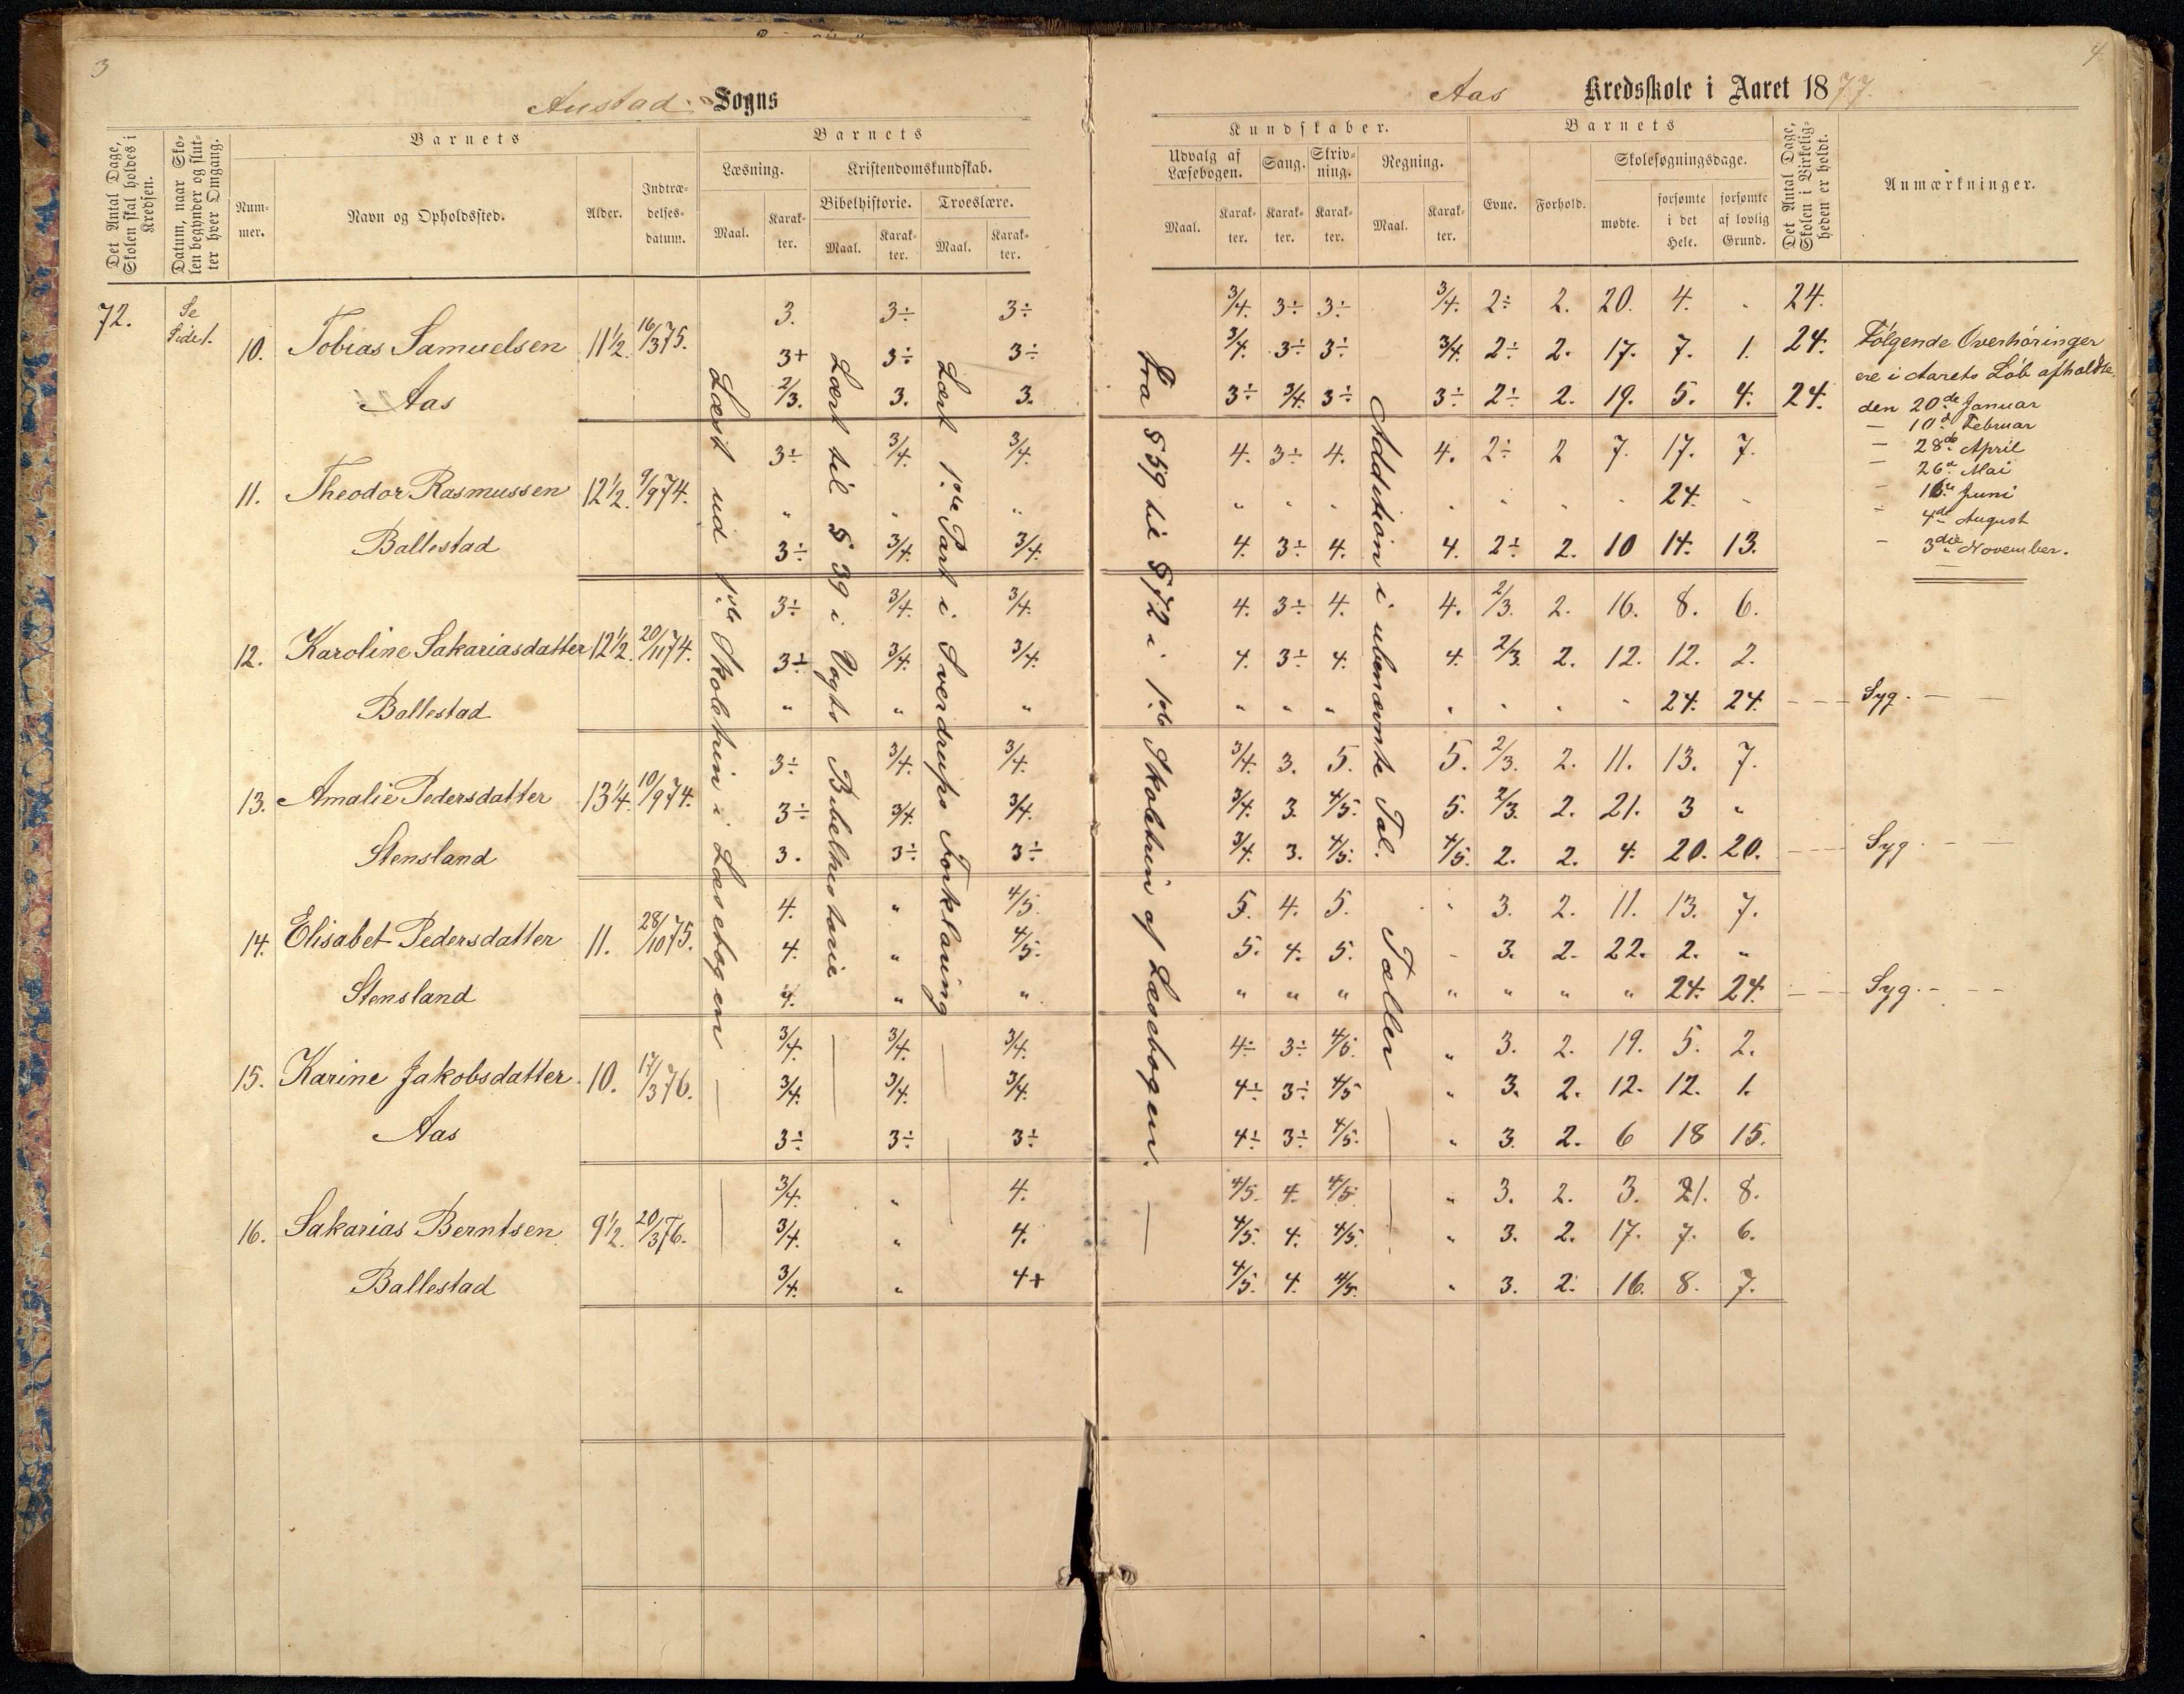 3
Austad Sogns
Det Antal Dage, Skolen skal holdes i Kredsen.
Datum, naar Skolen begynder og slutter hver Omgang.
Barnets
Nummer.
Navn og Opholdssted.
Alder.
Indtrædelsesdatum.
Barnets
Læsning.
Kristendomskundskab.
Bibelhistorie. Troeslære.
Maal. Karakter. Maal. Karakter. Maal. Karakter.
72. Se Side 1.
3. 3÷ 3÷
10. Tobias Samuelsen 11½. 16/3 75. 3+ 3÷ 3÷
Aas 2/3. 3. 3.
3÷ 3/4. 3/4.
11. Theodor Rasmussen 12½. 9/9 74. " " "
Ballestad 3÷ 3/4. 3/4.
3÷ 3/4. 3/4.
12. Karoline Sakariasdatter 12½. 20/11 74. 3÷ 3/4. 3/4.
Ballestad " " "
3÷ 3/4. 3/4.
13. Amalie Pedersdatter 13¼. 10/9 74. 3÷ 3/4. 3/4.
Stensland 3. 3÷ 3÷
4. " 4/5.
14. Elisabet Pedersdatter 11. 28/10 75. 4. " 4/5.
Stensland 4. " "
3/4. 3/4. 3/4.
15. Karine Jakobsdatter. 10. 17/3 76. 3/4. 3/4. 3/4.
Aas 3÷ 3÷ 3÷
3/4. " 4.
16. Sakarias Berntsen 9½. 20/3 76. 3/4. " 4.
Ballestad 3/4. " 4+
Læst ud 1ste Skoletrin i Læsebogen —
Lært til § 39 i Vogts Bibelhistorie
Lært 1ste Part i Sverdrups Forklaring
4
Aas Kredsskole i Aaret 1877.
Kundskaber.
Udvalg af Læsebogen. Sang. Skrivning. Regning.
Maal. Karakter. Karakter. Karakter. Maal. Karakter.
Barnets
Evne. Forhold.
Skolesøgningsdage.
mødte. forsømte i det Hele. forsømte af lovlig Grund.
Det Antal Dage, Skolen i Virkeligheden er holdt.
Anmærkninger.
3/4. 3÷ 3÷ 3/4. 2÷ 2. 20. 4. " 24.
3/4. 3÷ 3÷ 3/4. 2÷ 2. 17. 7. 1. 24.
3÷ 3/4. 3÷ 3÷ 2÷ 2. 19. 5. 4. 24.
4. 3÷ 4. 4. 2÷ 2 7. 17. 7.
" " " " " " " 24. "
4. 3÷ 4. 4. 2÷ 2. 10 14. 13.
4. 3÷ 4. 4. 2/3. 2. 16. 8. 6.
4. 3÷ 4. 4. 2/3. 2. 12. 12. 2.
" " " " " " " 24. 24. – – – Syg. – –
3/4. 3. 5. 5. 2/3. 2. 11. 13. 7.
3/4. 3. 4/5. 5. 2/3. 2. 21. 3 "
3/4. 3. 4/5. 4/5. 2. 2. 4. 20. 20. – – – Syg – –
5. 4. 5. " 3. 2. 11. 13. 7.
5. 4. 5. " 3. 2. 22. 2. "
" " " " " " " 24. 24. – – – Syg. – – –
4÷ 3÷ 4/5. " 3. 2. 19. 5. 2.
4÷ 3÷ 4/5 " 3. 2. 12. 12. 1.
4÷ 3÷ 4/5. " 3. 2. 6 18 15.
4/5. 4. 4/5. " 3. 2. 3. 21. 8.
4/5. 4. 4/5. " 3. 2. 17. 7. 6.
4/5. 4. 4/5. " 3. 2. 16. 8. 7.
Fra § 59 til § 72 i 1ste Skoletrin af Læsebogen. —
Addition i ubenævnte Tal. Tæller
Følgende Overhøringer
ere i Aarets Løb afholdte
den 20de Januar
– 10de Februar
– 28de April
– 26de Mai
– 16de Juni
– 4de August
– 3die November.